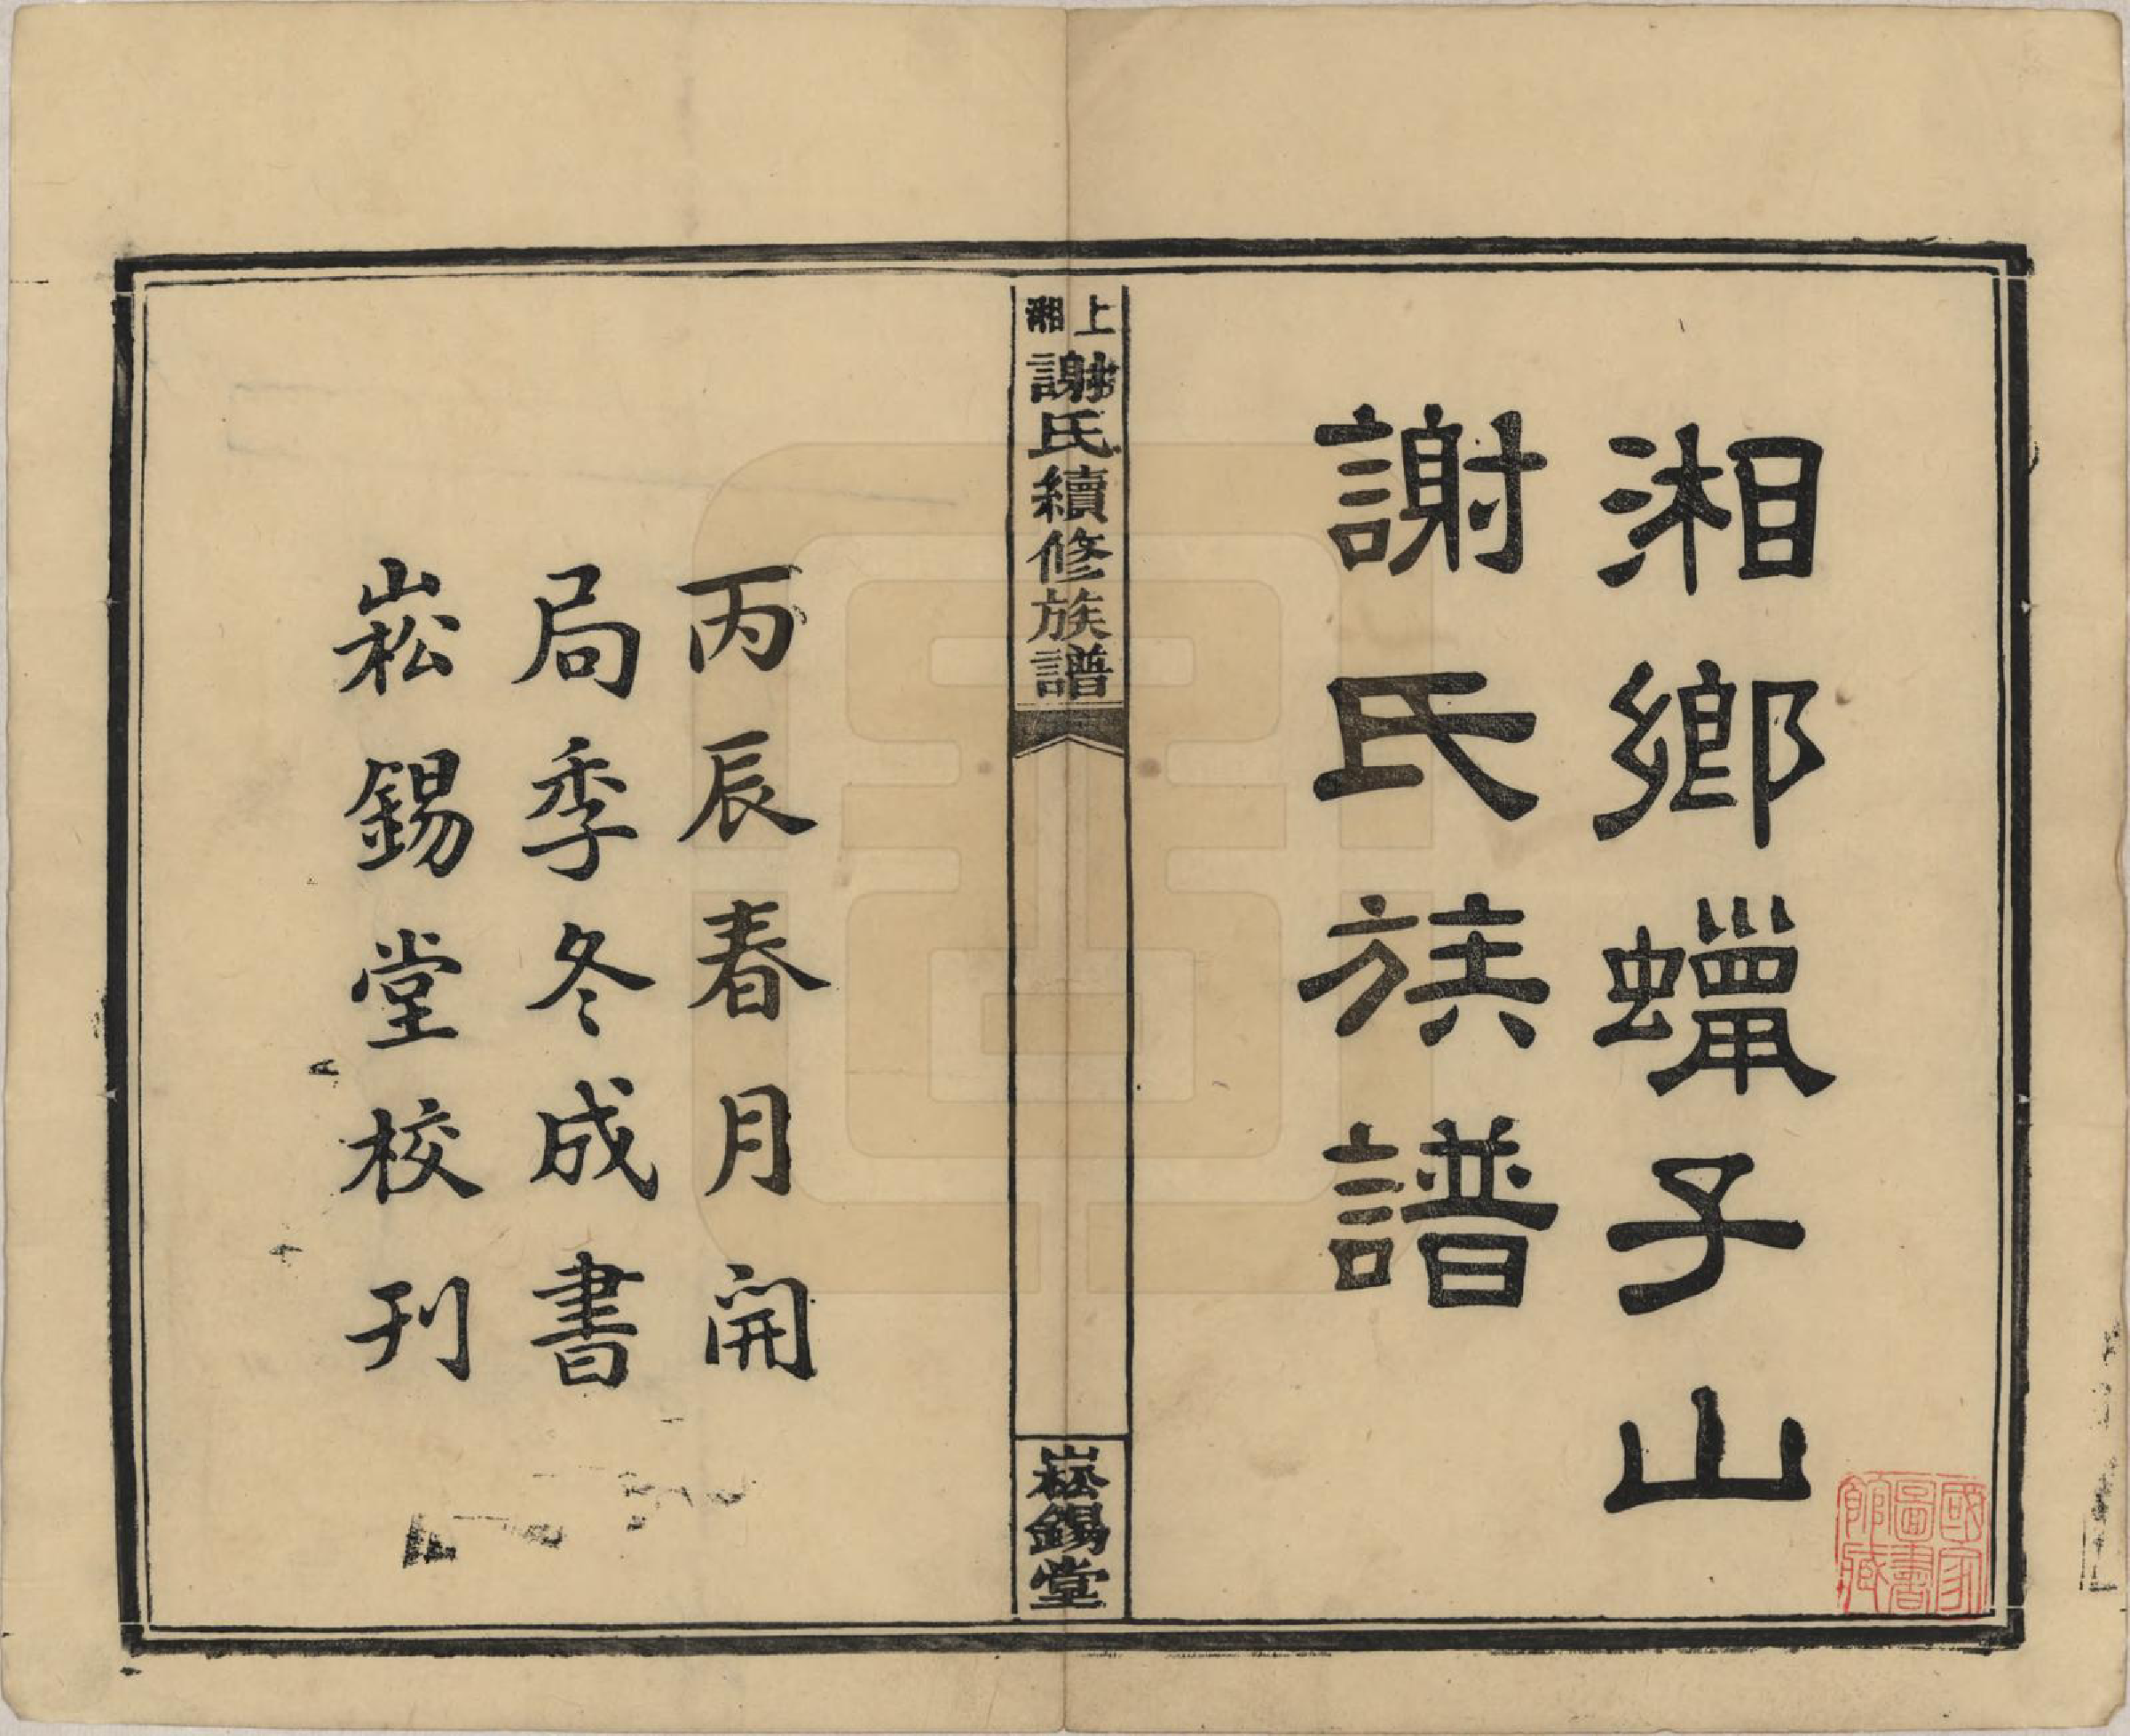 湘鄉蠟子山
謝氏族譜
上湘
謝氏續修族譜
崧錫堂
丙辰春月開
局季冬成書
崧錫堂校刊
國家
圖書
館藏